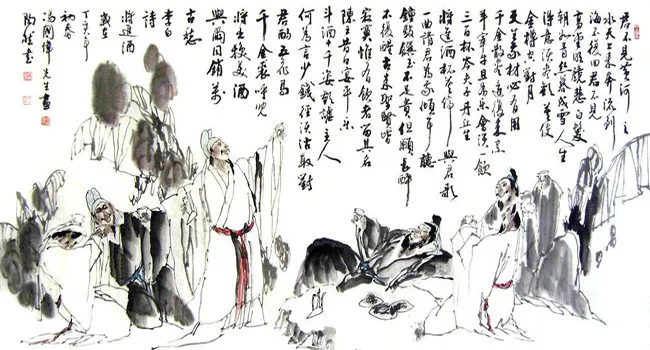 君不見黃河之
水天上來奔流到
海不復回君不見
高堂明鏡悲白髮
朝如青絲暮成雪人生
得意須盡歡莫使
金樽空對月
天生我材必有用
千金散盡還復來烹
羊宰牛且為樂會須一飲
三百杯岑夫子丹丘生
將進酒杯莫停與君歌
一曲請君為我傾耳聽
鐘鼓饌玉不足貴但願長醉
不復醒古來聖賢皆
寂寞惟有飲者留其名
陳王昔日宴平樂
斗酒十千恣歡謔主人
何為言少錢徑須沽取對
君酌五花馬
千金裘呼兒
將出換美酒
與爾同銷萬
古愁
李白
詩
將進酒
歲在
丁亥年
初春
國偉先生畫